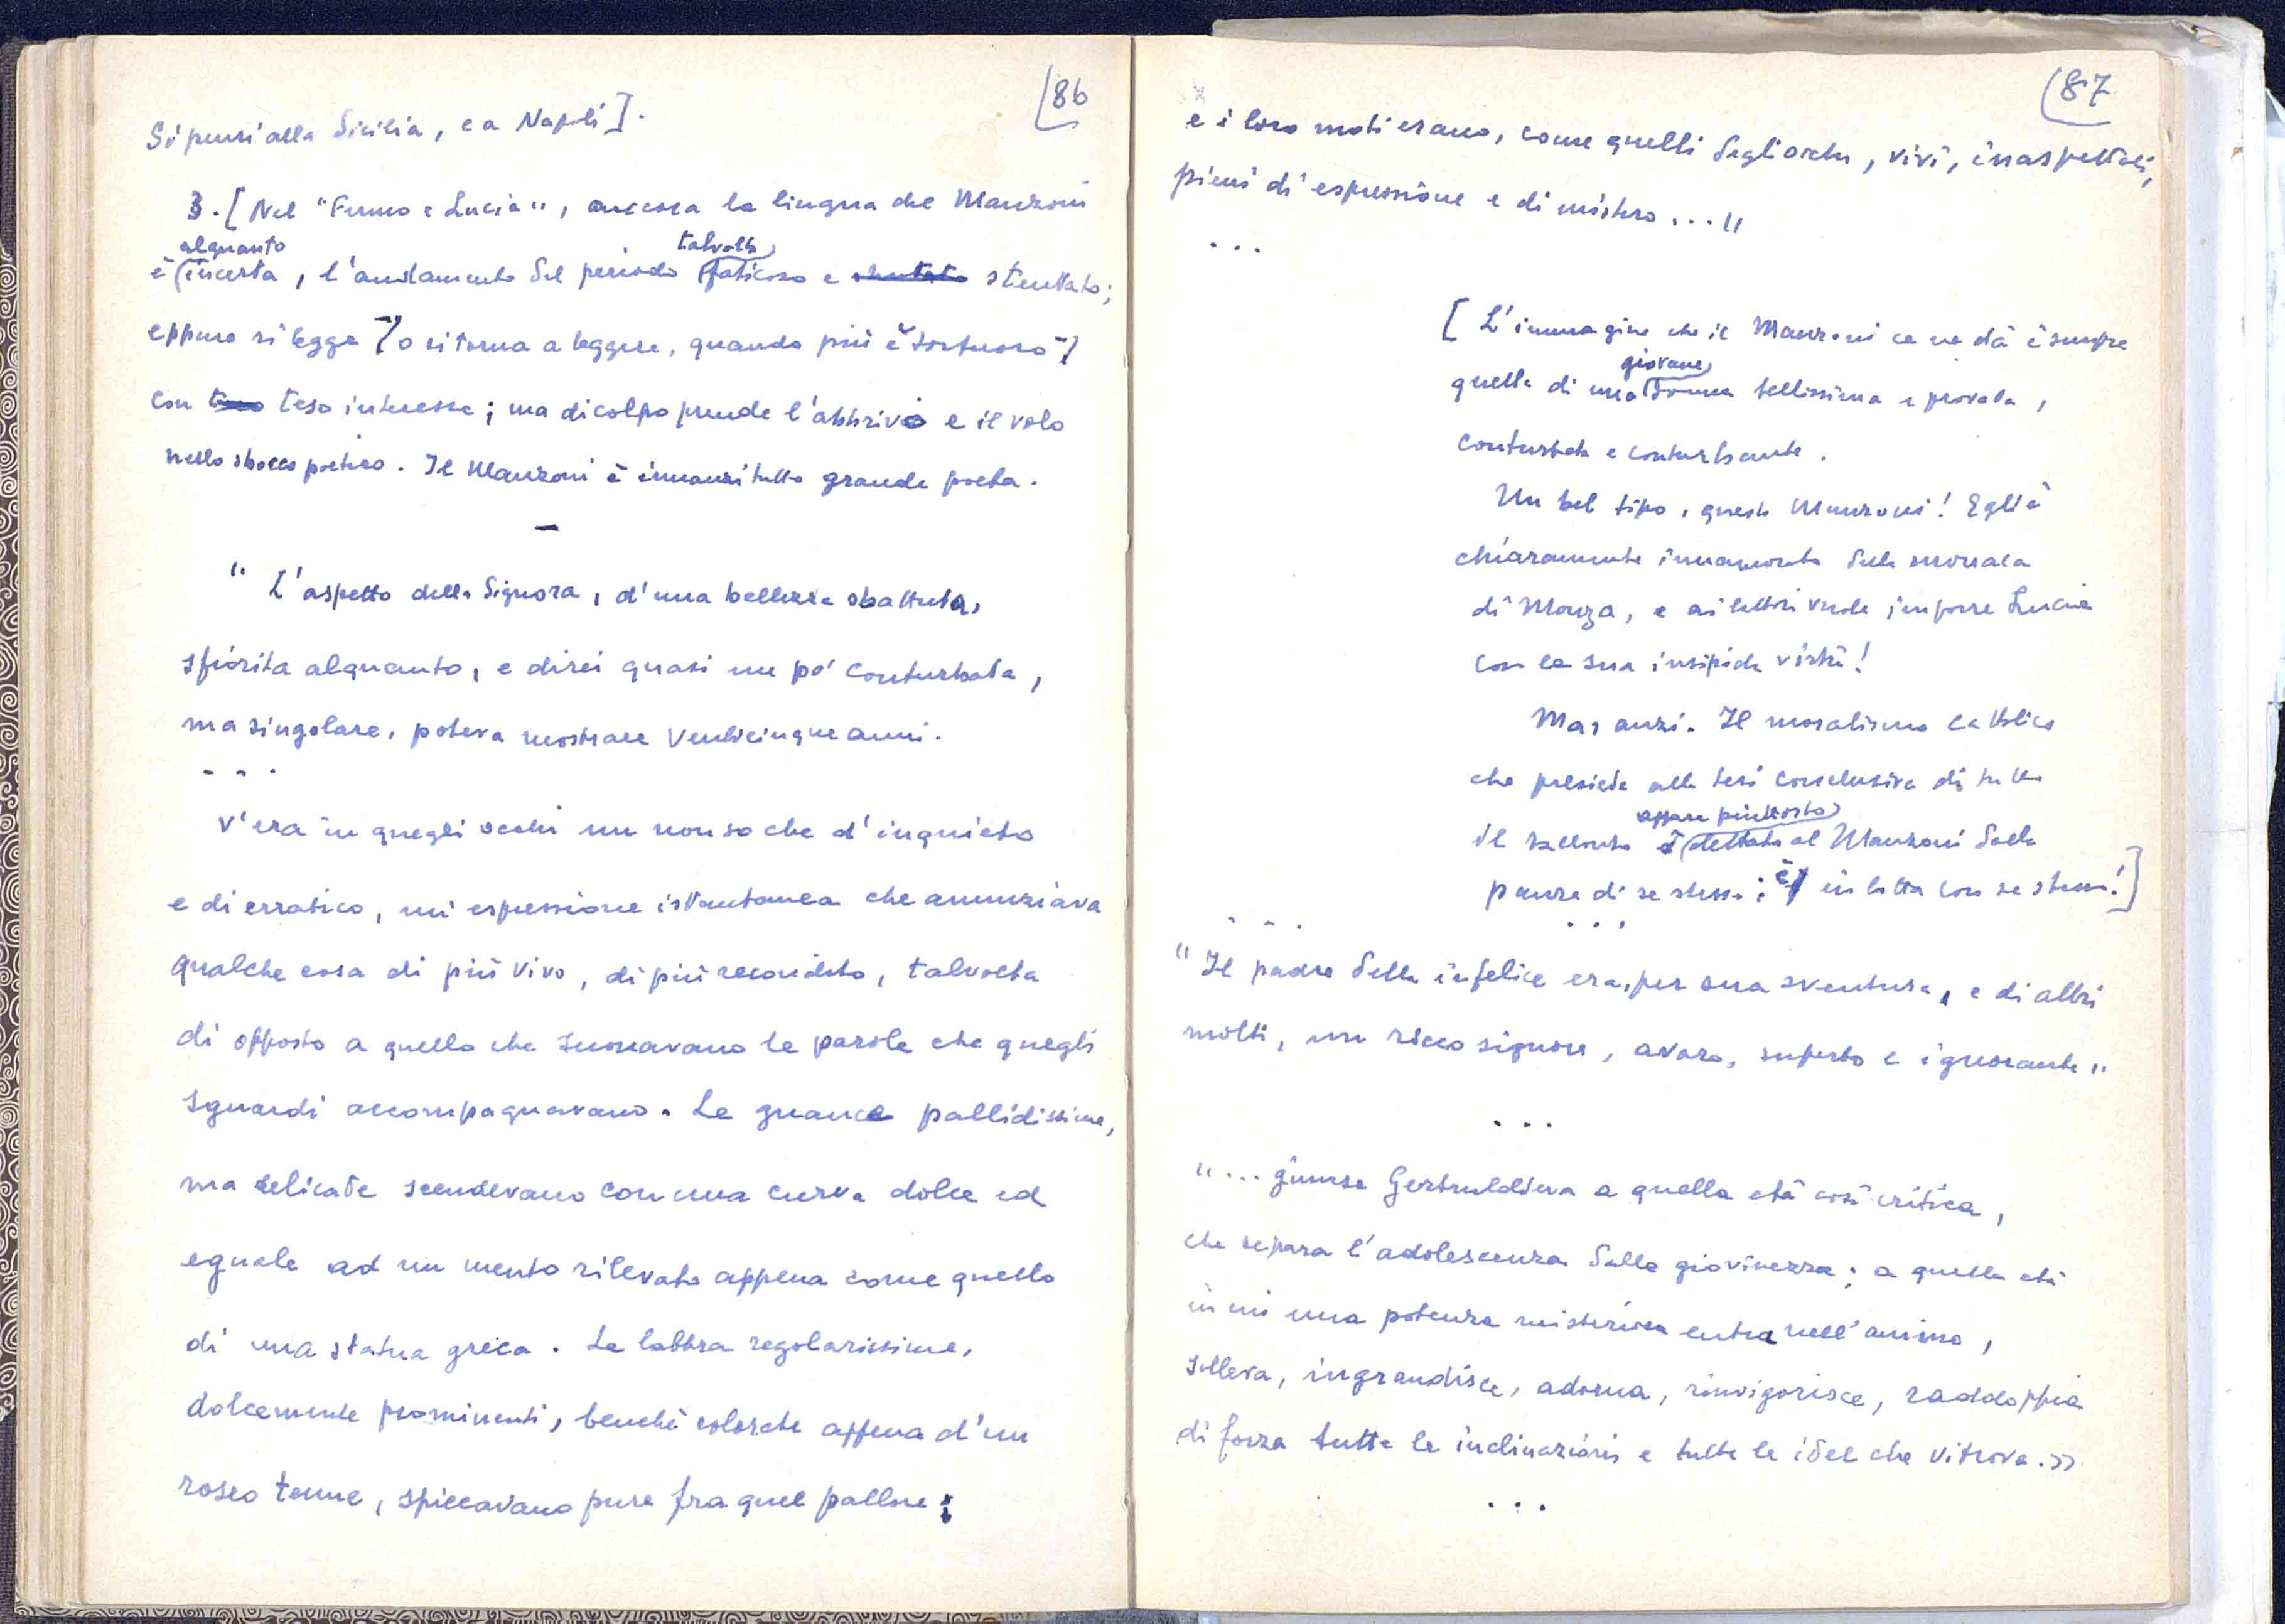 86
Si pensi alla Sicilia, e a Napoli].
3. [Nel "Fermo e Lucia", ancora la lingua del Manzoni
alquanto talvolta
è incerta, l'andamento del periodo faticoso e stentato;
eppure si legge [o si torna a leggere, quando più è tortuoso]
con teso interesse; ma di colpo prende l'abbrivo e il volo
nello sbocco poetico. Il Manzoni è innanzi tutto grande poeta.
—
" L'aspetto della Signora, d'una bellezza sbattuta,
sfiorita alquanto, e direi quasi un po' conturbata,
ma singolare, poteva mostrare venticinque anni.
- - -
V'era in quegli occhi un non so che d'inquieto
e di erratico, un'espressione istantanea che annunziava
qualche cosa di più vivo, di più recondito, talvolta
di opposto a quello che suonavano le parole che quegli
sguardi accompagnavano. Le guance pallidissime,
ma delicate scendevano con una curva dolce ed
eguale ad un mento rilevato appena come quello
di una statua greca. Le labbra regolarissime,
dolcemente prominenti, benché colorate appena d'un
roseo tenue, spiccavano pure fra quel pallore;
87
e i loro moti erano, come quelli degli occhi, vivi, inaspettati,
pieni di espressione e di mistero..."
...
[ L'immagine che il Manzoni ce ne dà è sempre
giovane
quella di una donna bellissima e provata,
conturbata e conturbante.
Un bel tipo, questo Manzoni! Egli è
chiaramente innamorato della monaca
di Monza, e ai lettori vuole imporre Lucia
con la sua insipida virtù!
Ma, anzi. Il moralismo cattolico
che presiede alla tesi conclusiva di tutto
appare piuttosto
il racconto dettato al Manzoni dalla
paura di se stesso; è in lotta con se stesso!]
- - . ...
"Il padre della infelice era, per sua sventura, e di altri
molti, un ricco signore, avaro, superbo e ignorante"
...
"... giunse Geltrudina a quella età così critica,
che separa l'adolescenza dalla giovinezza; a quella età
in cui una potenza misteriosa entra nell'animo,
solleva, ingrandisce, adorna, rinvigorisce, raddoppia
di forza tutte le inclinazioni e tutte le idee che vi trova.»
...